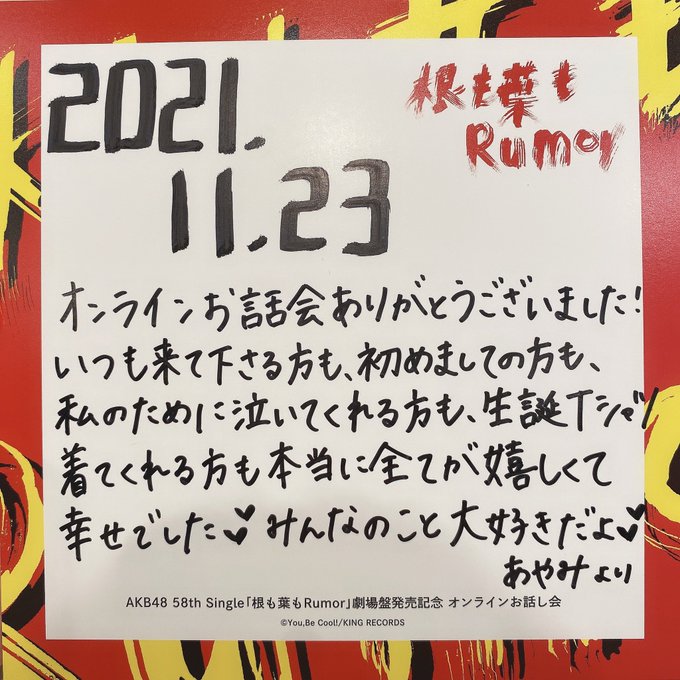 2021.
11.23
根も葉も
Rumor
オンラインお話会ありがとうございました!
いつも来て下さる方も、初めましての方も、
私のために泣いてくれる方も、生誕Tシャツ
着てくれる方も本当に全てが嬉しくて
幸せでした♥ みんなのこと大好きだよ♥
あやみより
AKB48 58th Single「根も葉もRumor」劇場盤発売記念 オンラインお話し会
©You,Be Cool!/KING RECORDS